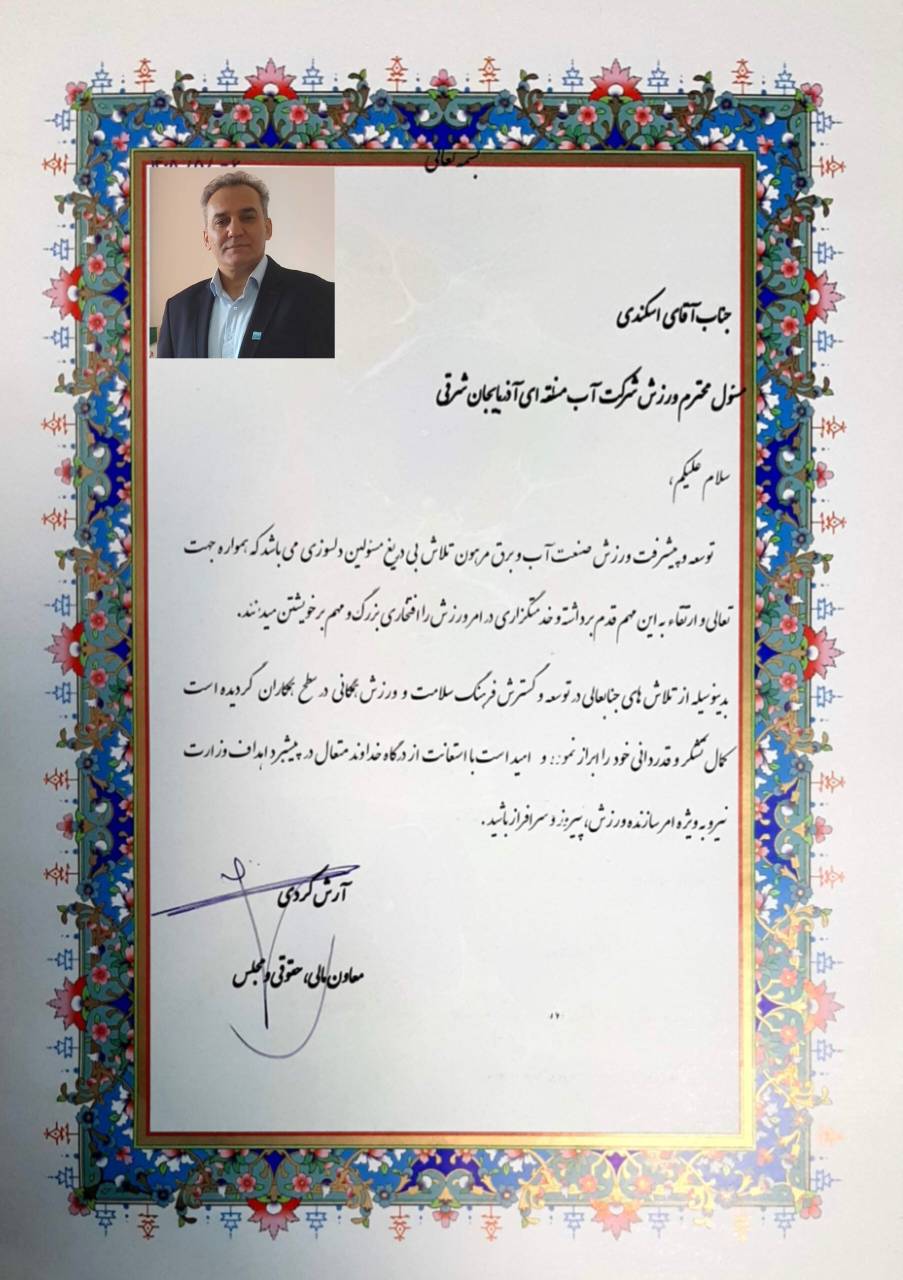 بسمه تعالی
جناب آقای اسکندی
مسئول محترم ورزش شرکت آب منطقه ای آذربایجان شرقی
سلام علیکم،
توسعه و پیشرفت ورزش صنعت آب و برق مرهون تلاش بی دریغ مسئولین دلسوزی می باشد که همواره جهت
تعالی و ارتقاء به این مهم قدم برداشته و خدمتگزاری در امر ورزش را افتخاری بزرگ و مهم بر خویشتن میدانند.
بدینوسیله از تلاش های جنابعالی در توسعه و گسترش فرهنگ سلامت و ورزش همگانی در سطح همکاران گردیده است
کمال تشکر و قدردانی خود را ابراز نموده و امید است با استعانت از درگاه خداوند متعال در پیشبرد اهداف وزارت
نیرو به ویژه امر سازنده ورزش، پیروز و سرافراز باشید.
آرش کردی
معاون مالی، حقوقی و مجلس